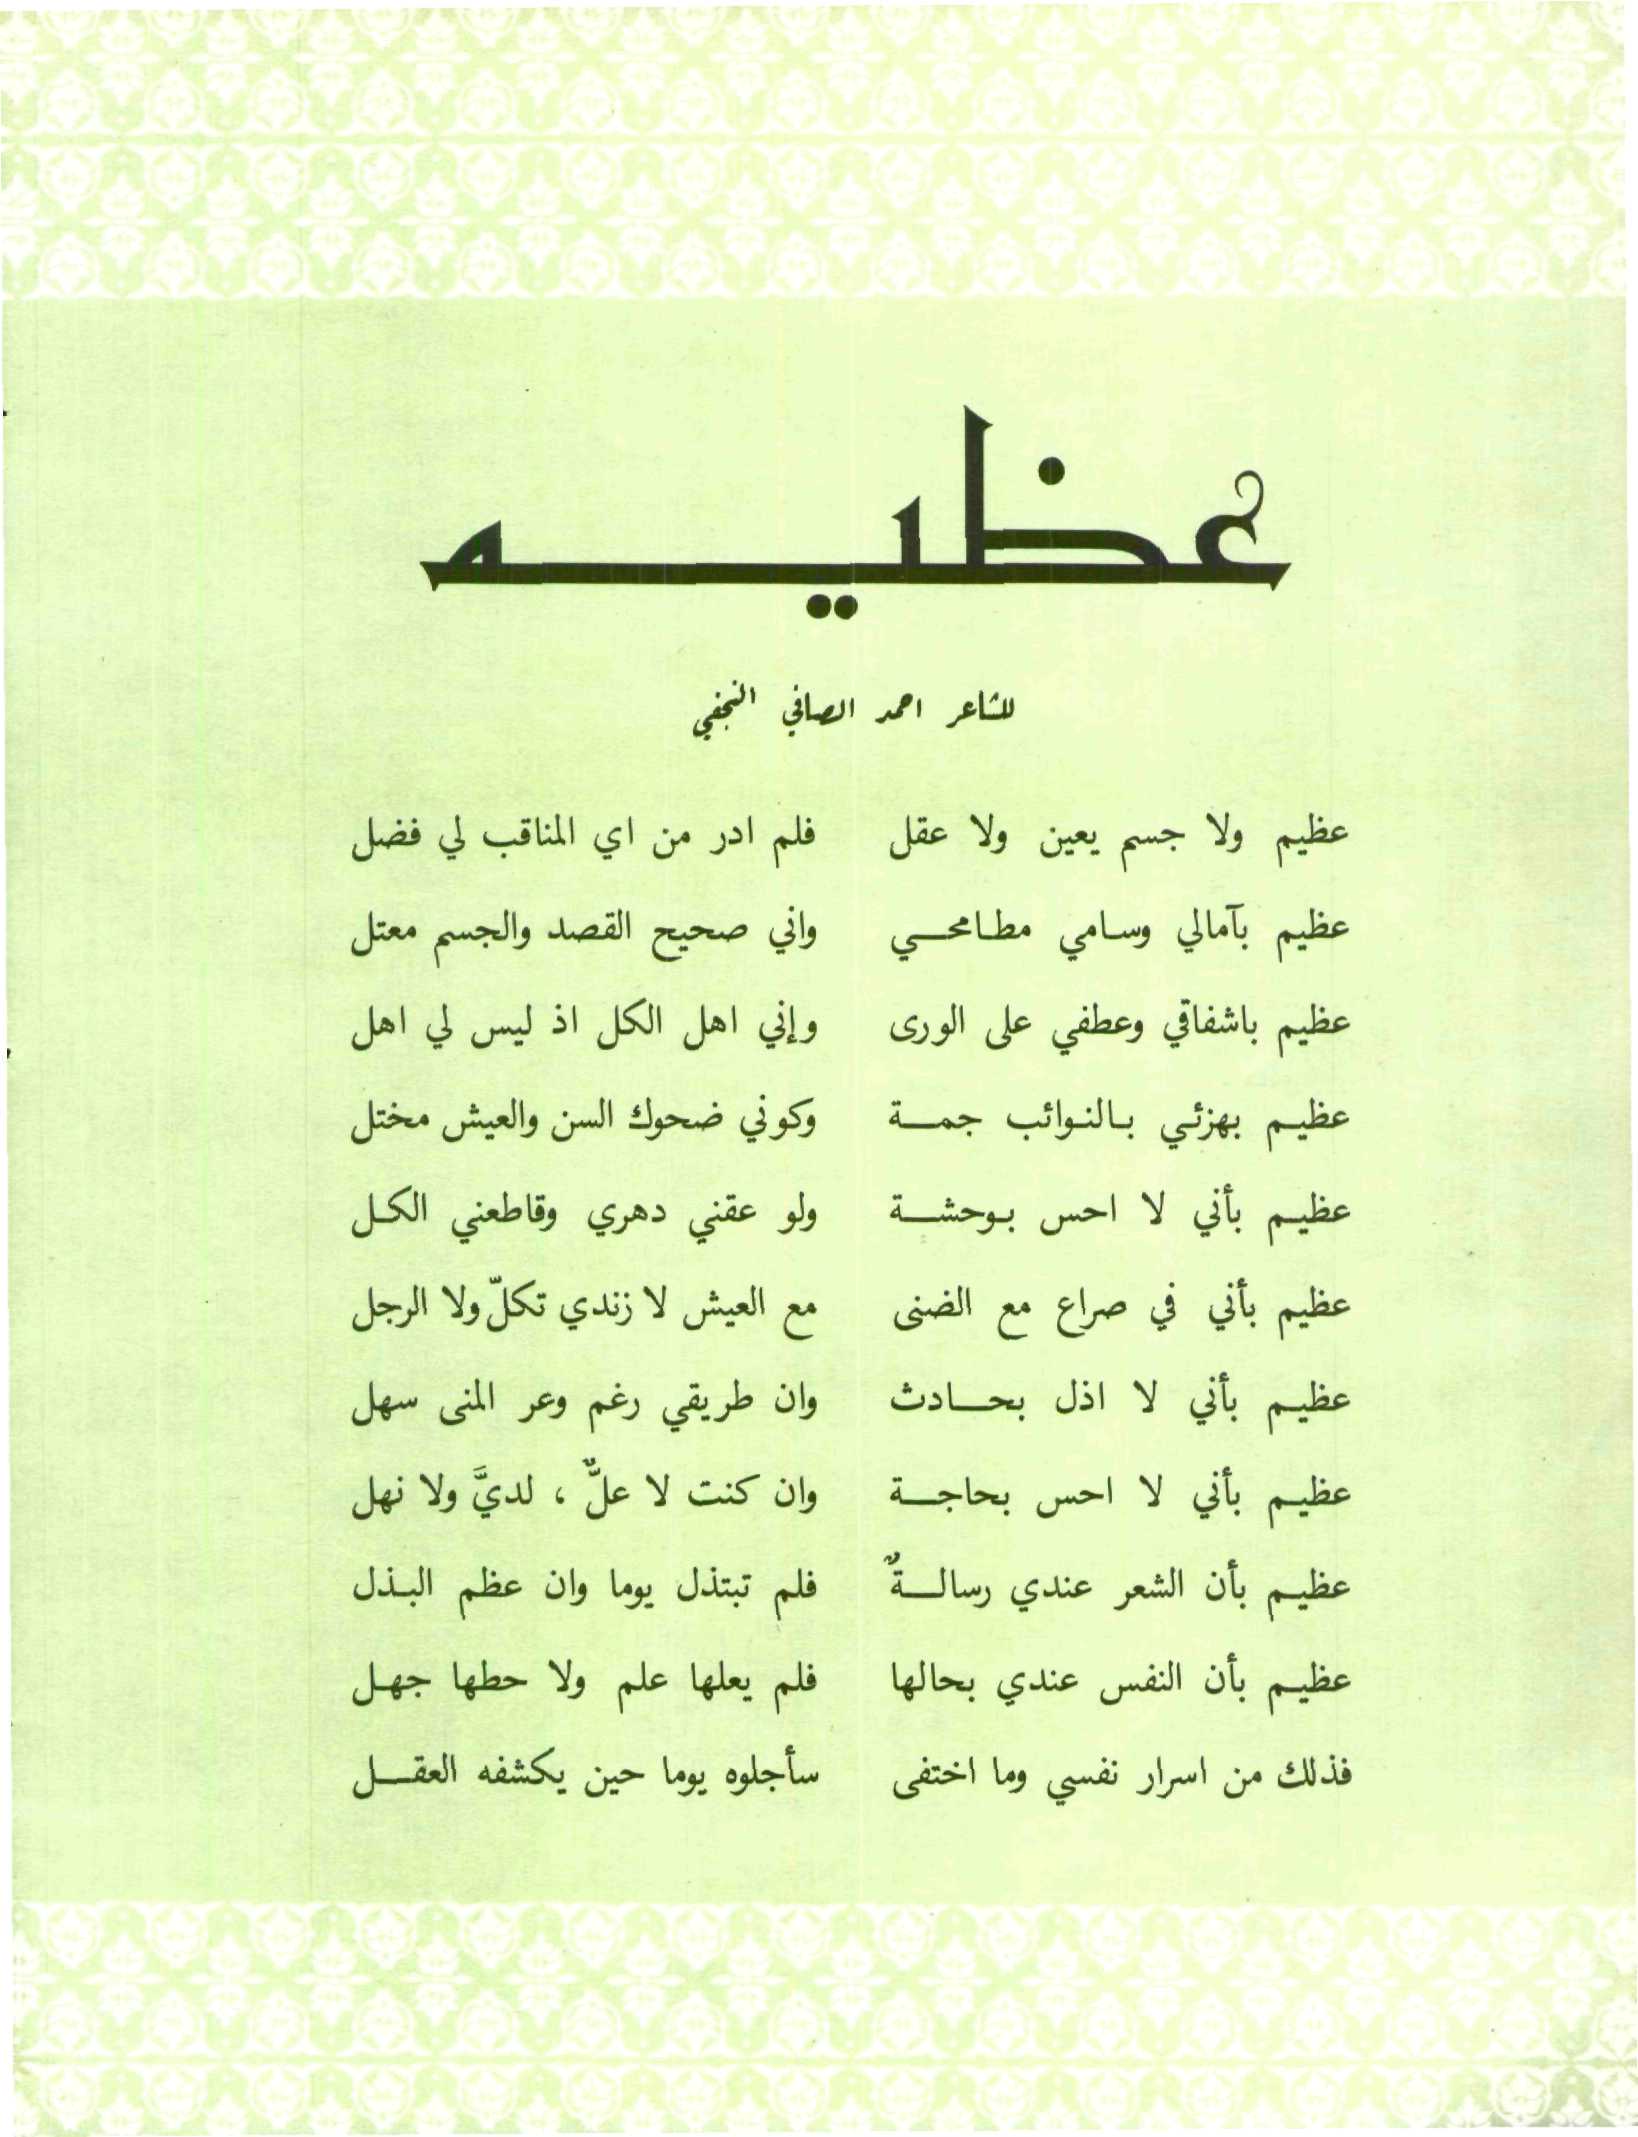 عظيم
للشاعر احمد الصافي النجفي
عظيم ولا جسم يعين ولا عقل فلم ادر من اي المناقب لي فضل
عظيم بآمالي وسامي مطامحي واني صحيح القصد والجسم معتل
عظيم باشفاقي وعطفي على الورى وإني اهل الكل اذ ليس لي اهل
عظيم بهزئي بالنوائب جمة وكوني ضحوك السن والعيش مختل
عظيم بأني لا احس بوحشة ولو عقني دهري وقاطعني الكل
عظيم بأني في صراع مع الضنى مع العيش لا زندي تكلّ ولا الرجل
عظيم بأني لا اذل بحادث وان طريقي رغم وعر المنى سهل
عظيم بأني لا احس بحاجة وان كنت لا علٌّ ، لديَّ ولا نهل
عظيم بأن الشعر عندي رسالةٌ فلم تبتذل يوما وان عظم البذل
عظيم بأن النفس عندي بحالها فلم يعلها علم ولا حطها جهل
فذلك من اسرار نفسي وما اختفى سأجلوه يوما حين يكشفه العقل